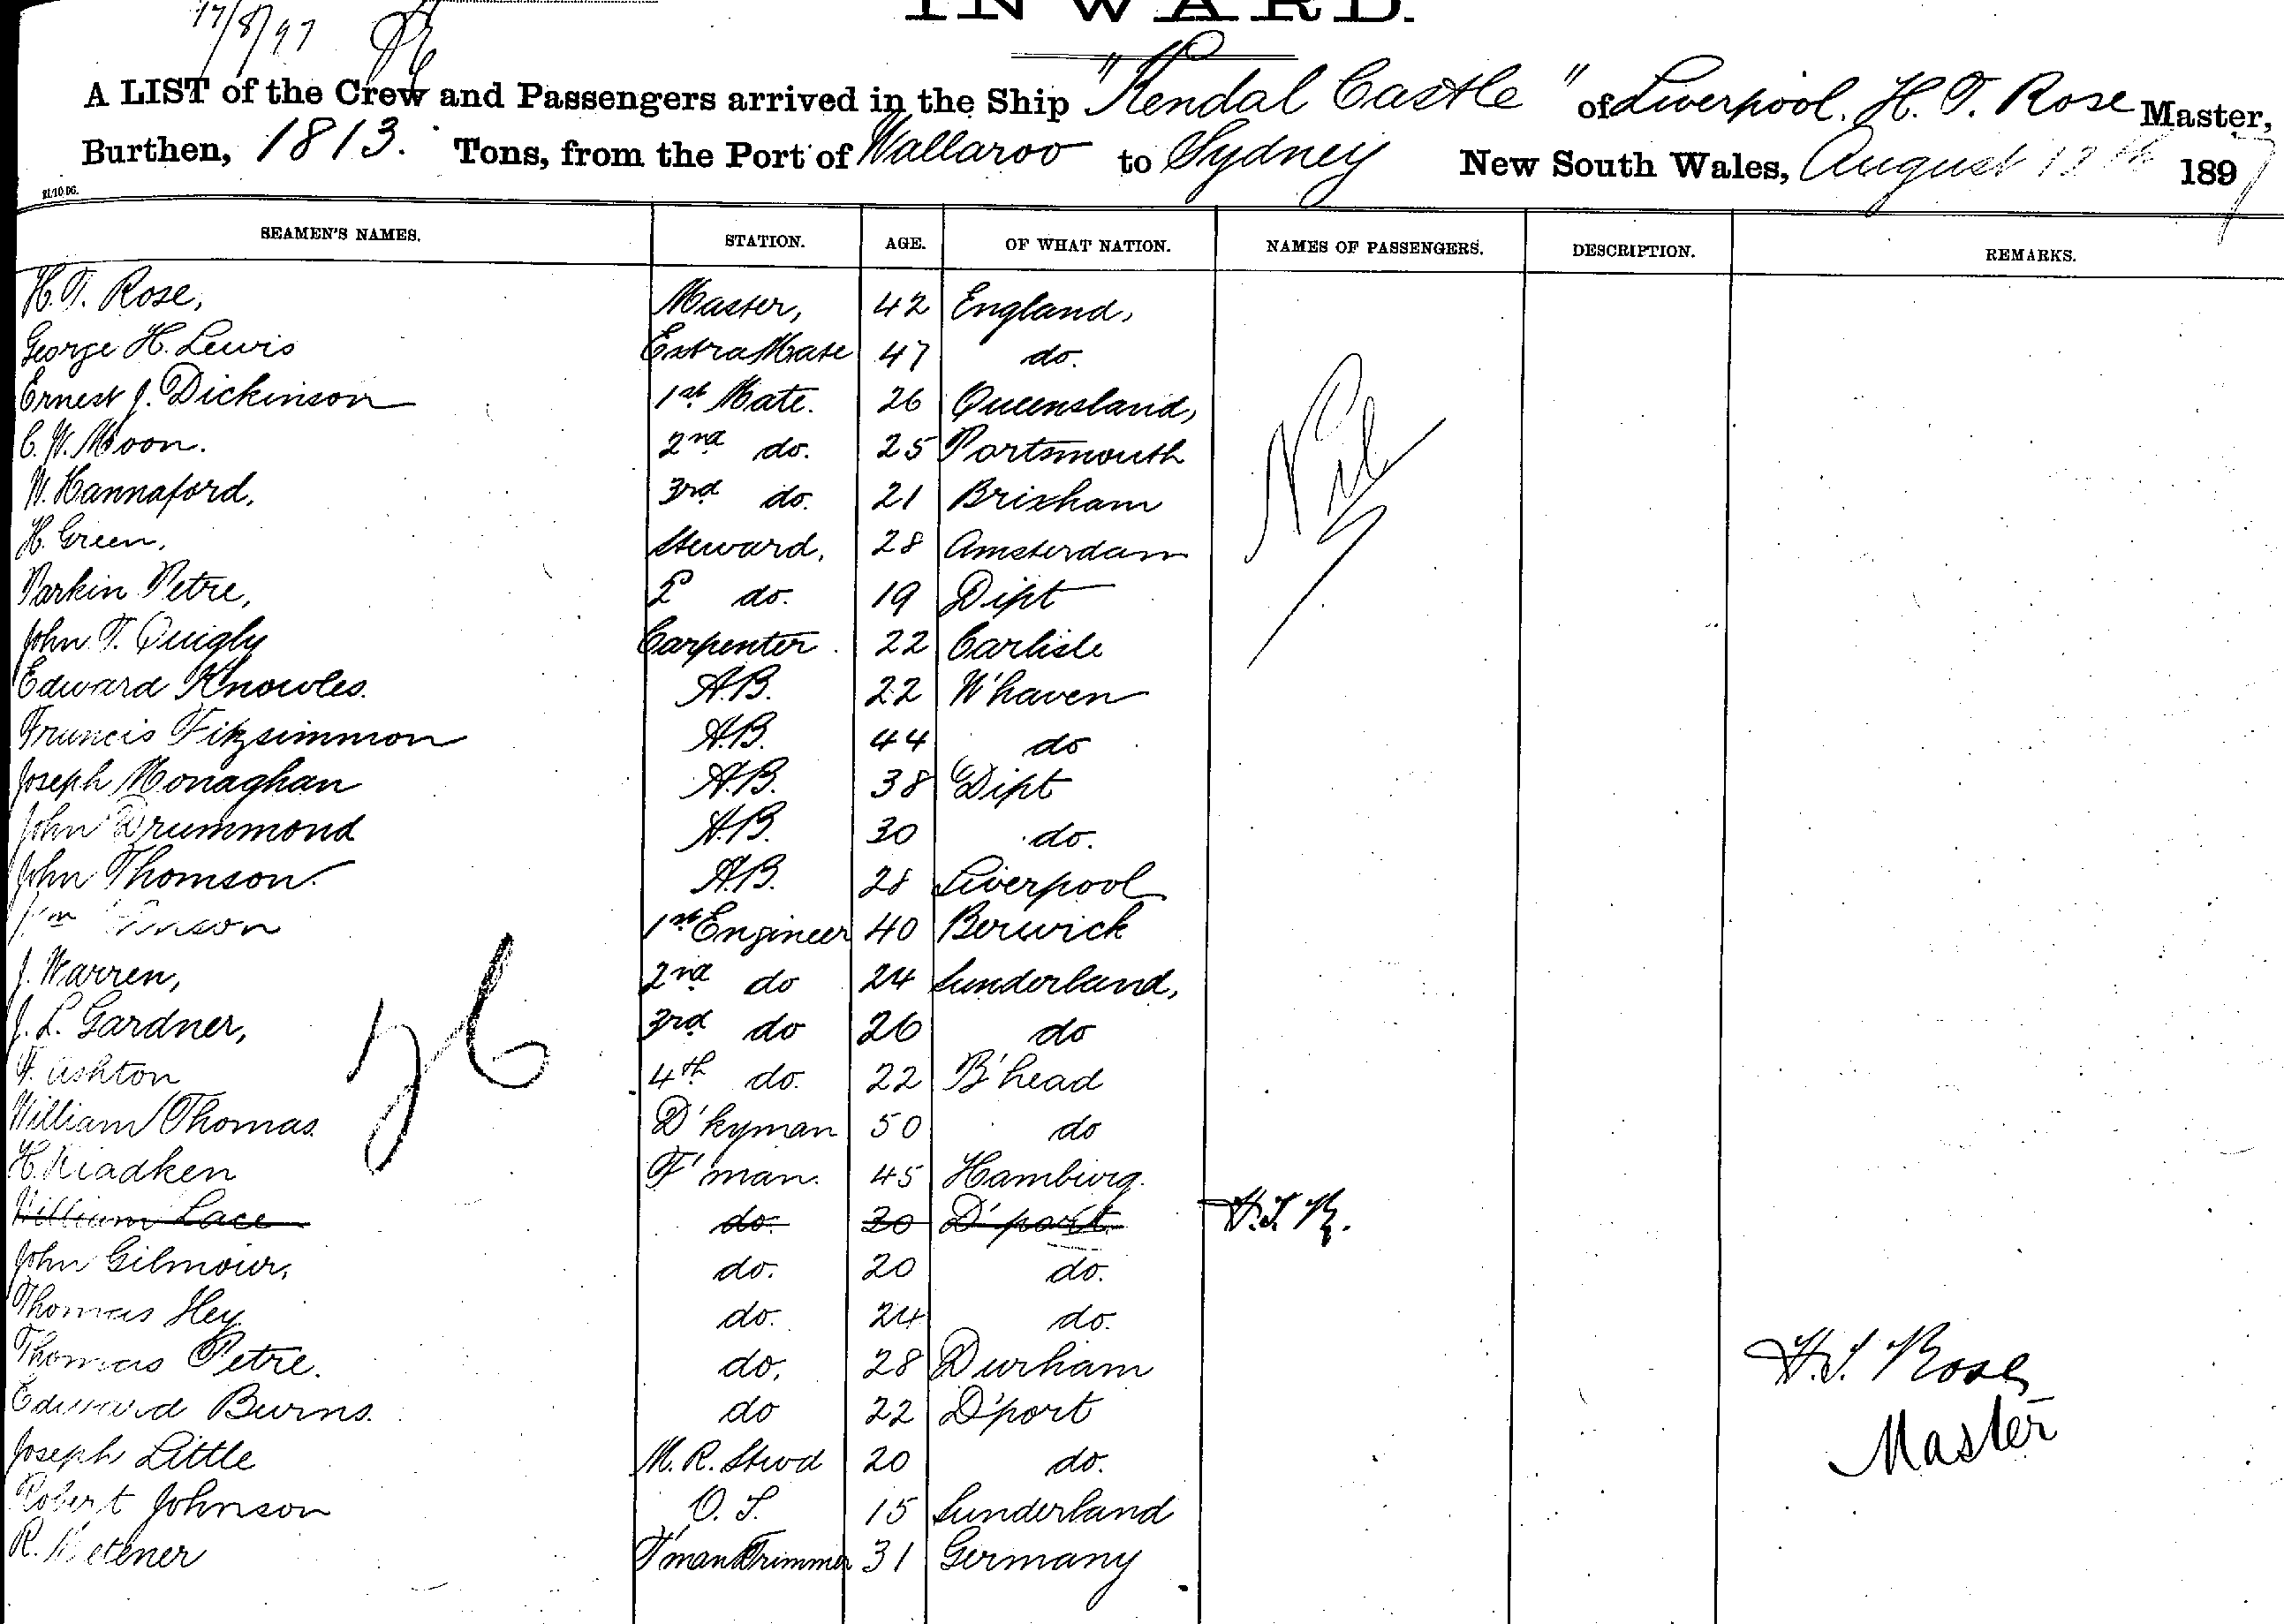 17/8/97
INWARD.
A LIST of the Crew and Passengers arrived in the Ship "Kendal Castle" of Liverpool. H. T. Rose Master,
Burthen, 1813. Tons, from the Port of Wallaroo to Sydney New South Wales, August 12th 1897
21.10.96.
SEAMEN'S NAMES. STATION. AGE. OF WHAT NATION. NAMES OF PASSENGERS. DESCRIPTION. REMARKS.
H. T. Rose, Master, 42 England,
George H. Lewis Extra Mate 47 do.
Ernest J. Dickinson 1st Mate. 26 Queensland,
C. W. Moon. 2nd do. 25 Portsmouth
Nil
W. Hannaford, 3rd do. 21 Brixham
H. Green, Steward, 28 Amsterdam
Parkin Petre, 2 do. 19 Dipt
John T. Quigly Carpenter. 22 Carlisle
Edward Knowles. A.B. 22 W'haven
Francis Fitzsimmon A.B. 44 do
Joseph Monaghan A.B. 38 Dipt
John Drummond A.B. 30 do.
John Thomson. A.B. 28 Liverpool
1st Engineer 40 Berwick
J. Warren, 2nd do 24 Sunderland,
J. L. Gardner, 3rd do 26 do
F. Ashton 4th do. 22 B'head
William Thomas. D'kyman 50 do
H. Kiadken F'man. 45 Hamburg.
William Lace do. 30 D'port H.T.R.
John Gilmour, do. 20 do.
Thomas Hey do. 24 do.
Thomas Petre. do. 28 Durham H.T. Rose
Edward Burns. do 22 D'port
Master
Joseph Little M. R. Stwd 20 do.
Robert Johnson O. S. 15 Sunderland
R. F'man & Trimmer 31 Germany